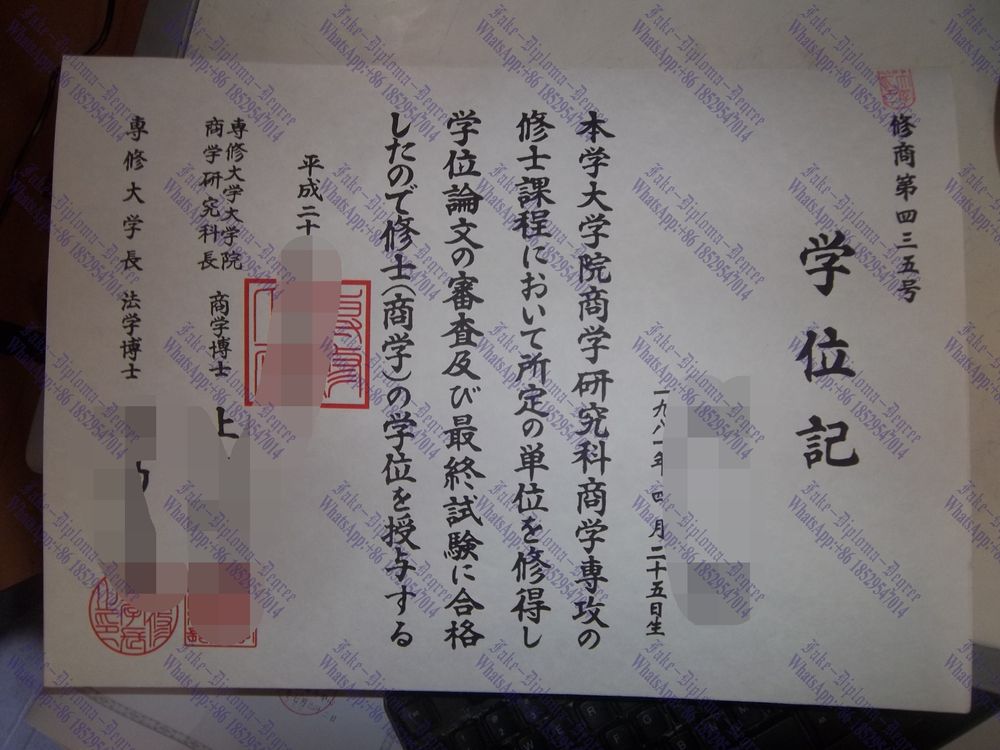 修商第四三五号
学位記
一九八一年四月二十五日生
本学大学院商学研究科商学専攻の
修士課程において所定の単位を修得し
学位論文の審査及び最終試験に合格
したので修士(商学)の学位を授与する
平成二十
専修大学大学院
商学研究科長 商学博士 上
専修大学長 法学博士
Fake-Diploma-Degree
WhatsApp:+86 18529547014